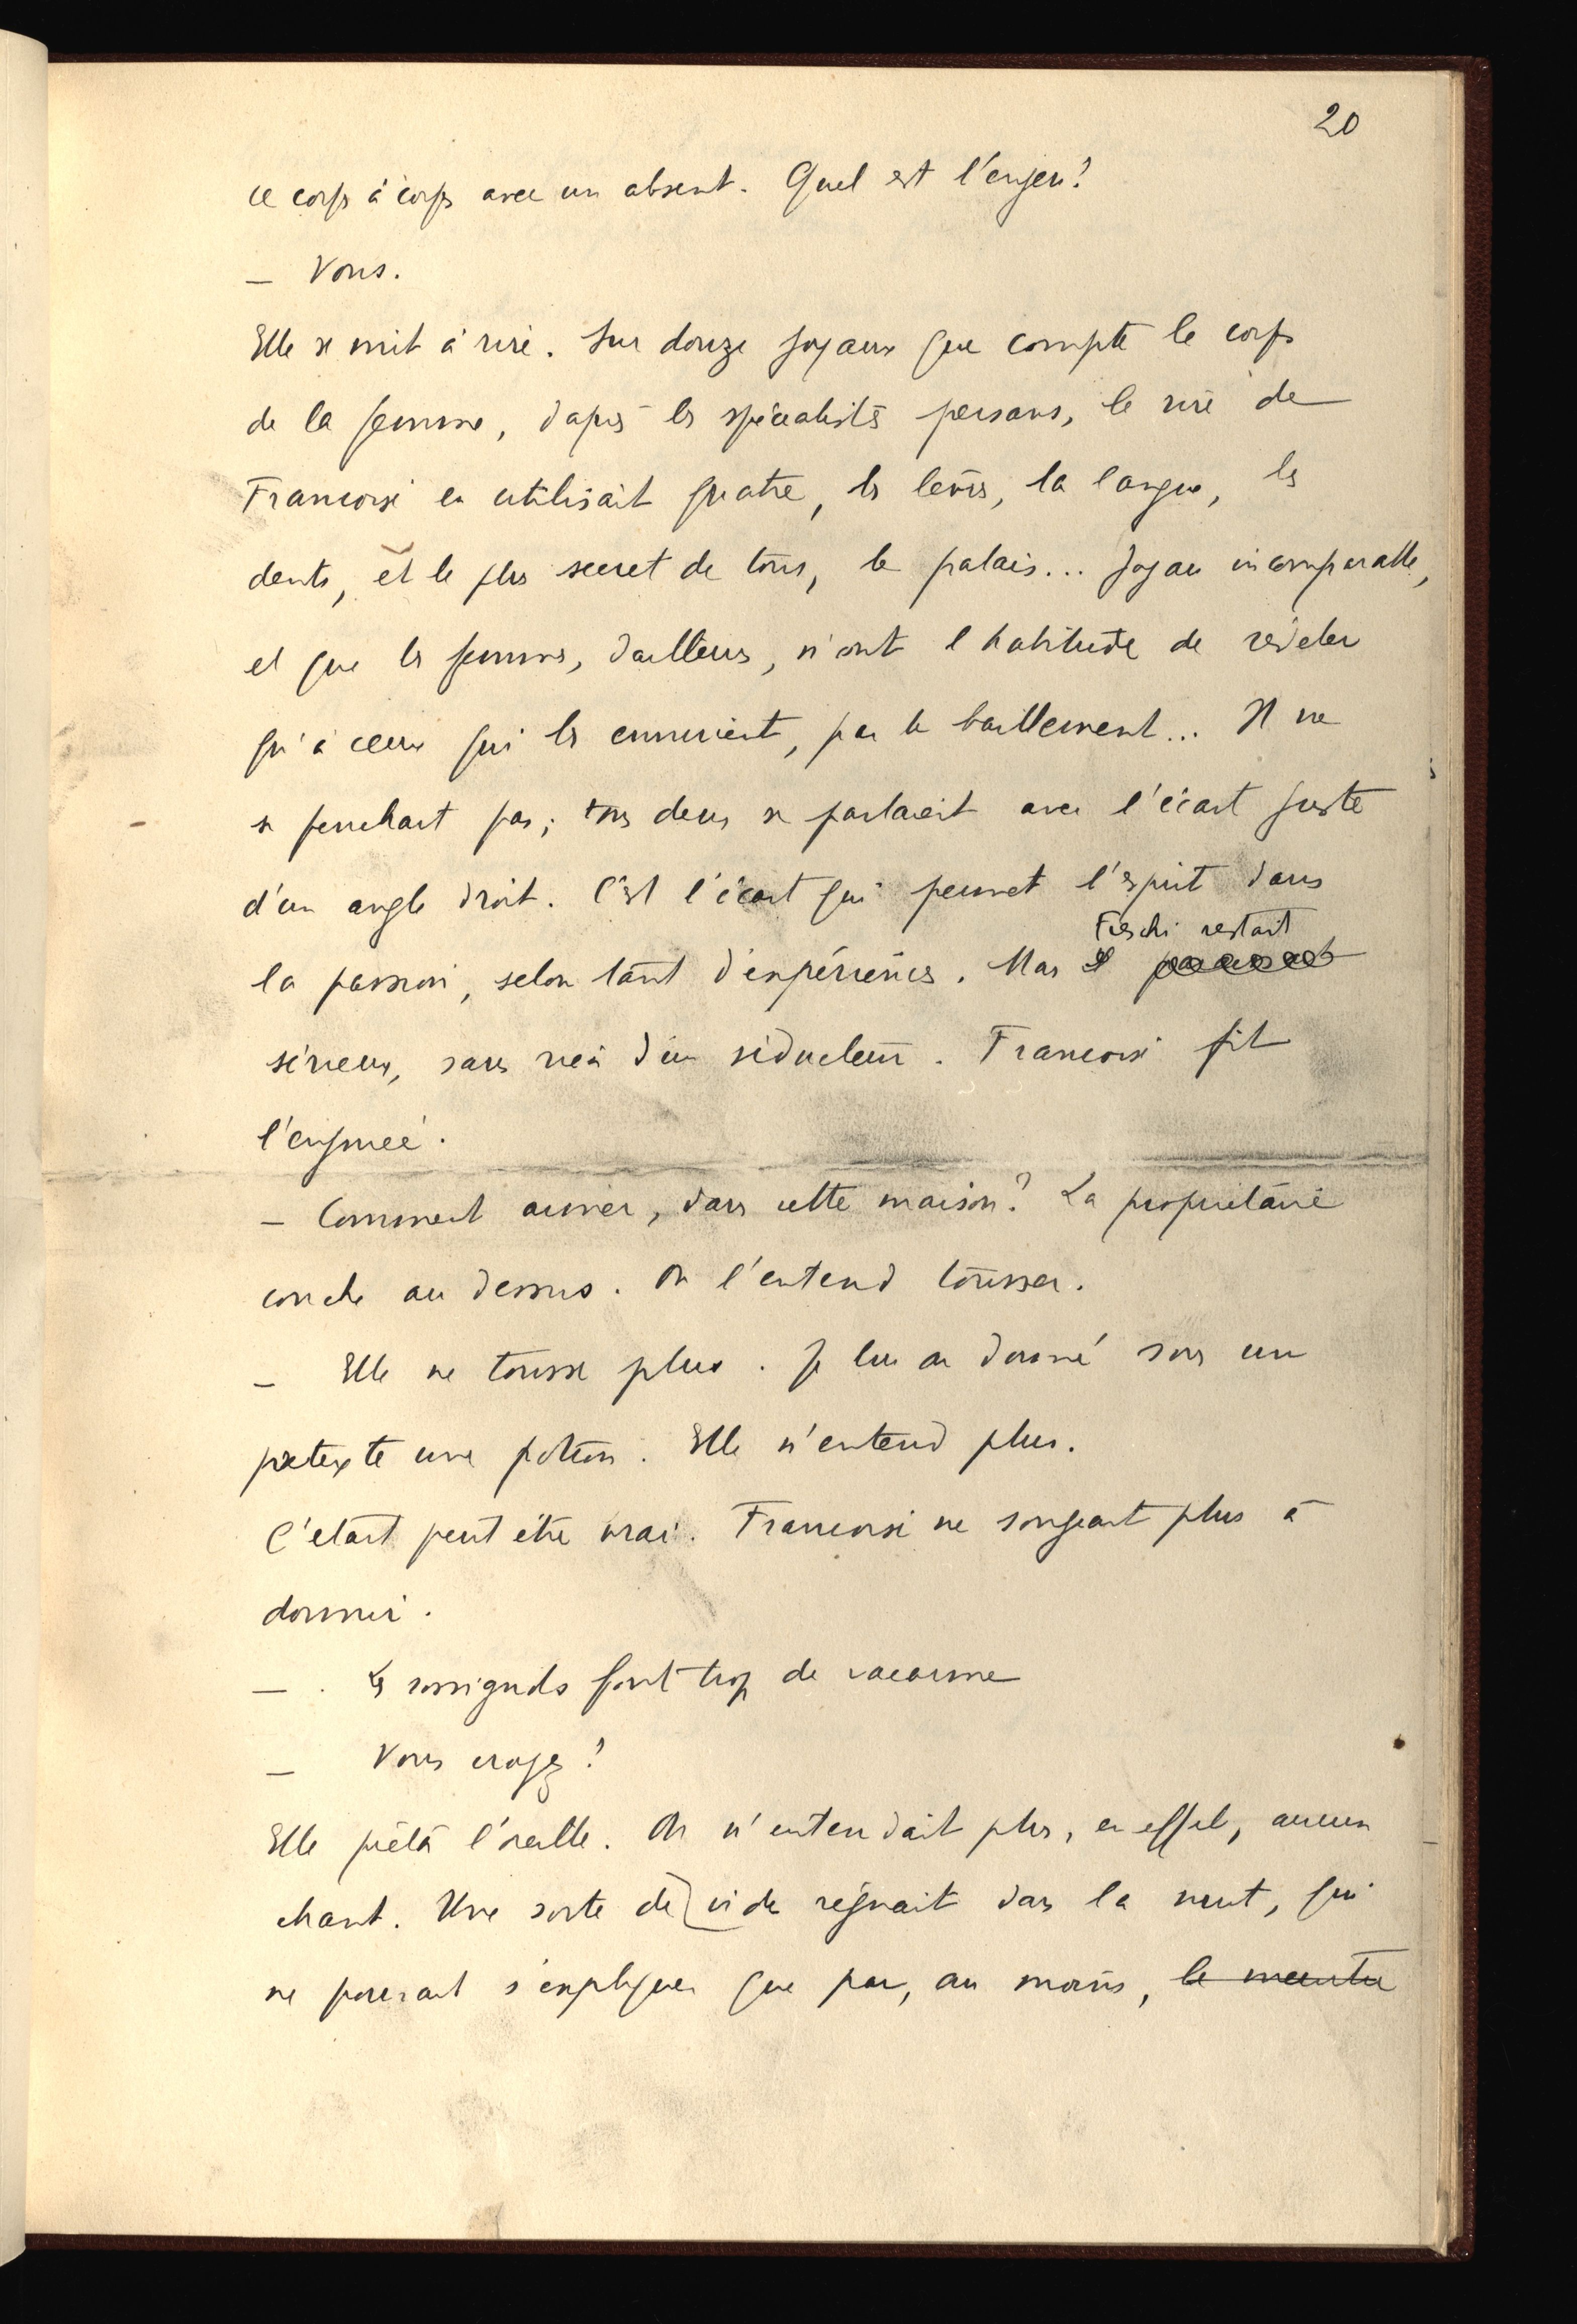 20
ce corps à corps avec un absent. Quel est l'enjeu?
— Vous.
Elle se mit à rire. Sur douze joyaux que compte le corps
de la femme, d'après les spécialistes persans, le rire de
Françoise en utilisait quatre, les lèvres, la langue, les
dents, et le plus secret de tous, le palais... Joyau incomparable,
et que les femmes, d'ailleurs, n'ont l'habitude de révéler
qu'à ceux qui les ennuient, par le baillement... Il ne
se penchait pas; tous deux se parlaient avec l'écart juste
d'un angle droit. C'est l'écart qui permet l'esprit dans
Fieschi restait
la passion, selon tant d'expériences. Mais il
sérieux, sans rien d'un séducteur. Françoise fit
l'enjouée.
— Comment aimer, dans cette maison? La propriétaire
couche au dessus. On l'entend tousser.
— Elle ne tousse plus. Je lui ai donné sous un
prétexte une potion. Elle n'entend plus.
C'était peut être vrai. Françoise ne songeait plus à
dormir.
— . Les rossignols font trop de vacarme
— Vous croyez?
Elle prêta l'oreille. On n'entendait plus, en effet, aucun
chant. Une sorte de vide régnait dans la nuit, qui
ne pouvait s'expliquer que par, au moins, le meurtre